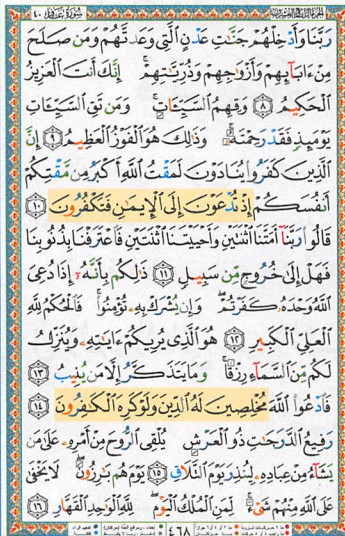 سورة غافر ٤٠
رَبَّنَا وَأَدْخِلْهُمْ جَنَّٰتِ عَدْنٍ ٱلَّتِى وَعَدتَّهُمْ وَمَن صَلَحَ
مِنْ ءَابَآئِهِمْ وَأَزْوَٰجِهِمْ وَذُرِّيَّٰتِهِمْ ۚ إِنَّكَ أَنتَ ٱلْعَزِيزُ
ٱلْحَكِيمُ ٨ وَقِهِمُ ٱلسَّيِّـَٔاتِ ۚ وَمَن تَقِ ٱلسَّيِّـَٔاتِ
يَوْمَئِذٍ فَقَدْ رَحِمْتَهُۥ ۚ وَذَٰلِكَ هُوَ ٱلْفَوْزُ ٱلْعَظِيمُ ٩ إِنَّ
ٱلَّذِينَ كَفَرُوا۟ يُنَادَوْنَ لَمَقْتُ ٱللَّهِ أَكْبَرُ مِن مَّقْتِكُمْ
أَنفُسَكُمْ إِذْ تُدْعَوْنَ إِلَى ٱلْإِيمَٰنِ فَتَكْفُرُونَ ١٠
قَالُوا۟ رَبَّنَآ أَمَتَّنَا ٱثْنَتَيْنِ وَأَحْيَيْتَنَا ٱثْنَتَيْنِ فَٱعْتَرَفْنَا بِذُنُوبِنَا
فَهَلْ إِلَىٰ خُرُوجٍ مِّن سَبِيلٍ ١١ ذَٰلِكُم بِأَنَّهُۥٓ إِذَا دُعِىَ
ٱللَّهُ وَحْدَهُۥ كَفَرْتُمْ ۖ وَإِن يُشْرَكْ بِهِۦ تُؤْمِنُوا۟ ۚ فَٱلْحُكْمُ لِلَّهِ
ٱلْعَلِىِّ ٱلْكَبِيرِ ١٢ هُوَ ٱلَّذِى يُرِيكُمْ ءَايَٰتِهِۦ وَيُنَزِّلُ
لَكُم مِّنَ ٱلسَّمَآءِ رِزْقًا ۚ وَمَا يَتَذَكَّرُ إِلَّا مَن يُنِيبُ ١٣
فَٱدْعُوا۟ ٱللَّهَ مُخْلِصِينَ لَهُ ٱلدِّينَ وَلَوْ كَرِهَ ٱلْكَٰفِرُونَ ١٤
رَفِيعُ ٱلدَّرَجَٰتِ ذُو ٱلْعَرْشِ يُلْقِى ٱلرُّوحَ مِنْ أَمْرِهِۦ عَلَىٰ مَن
يَشَآءُ مِنْ عِبَادِهِۦ لِيُنذِرَ يَوْمَ ٱلتَّلَاقِ ١٥ يَوْمَ هُم بَٰرِزُونَ ۖ لَا يَخْفَىٰ
عَلَى ٱللَّهِ مِنْهُمْ شَىْءٌ ۚ لِّمَنِ ٱلْمُلْكُ ٱلْيَوْمَ ۖ لِلَّهِ ٱلْوَٰحِدِ ٱلْقَهَّارِ ١٦
٤٦٨